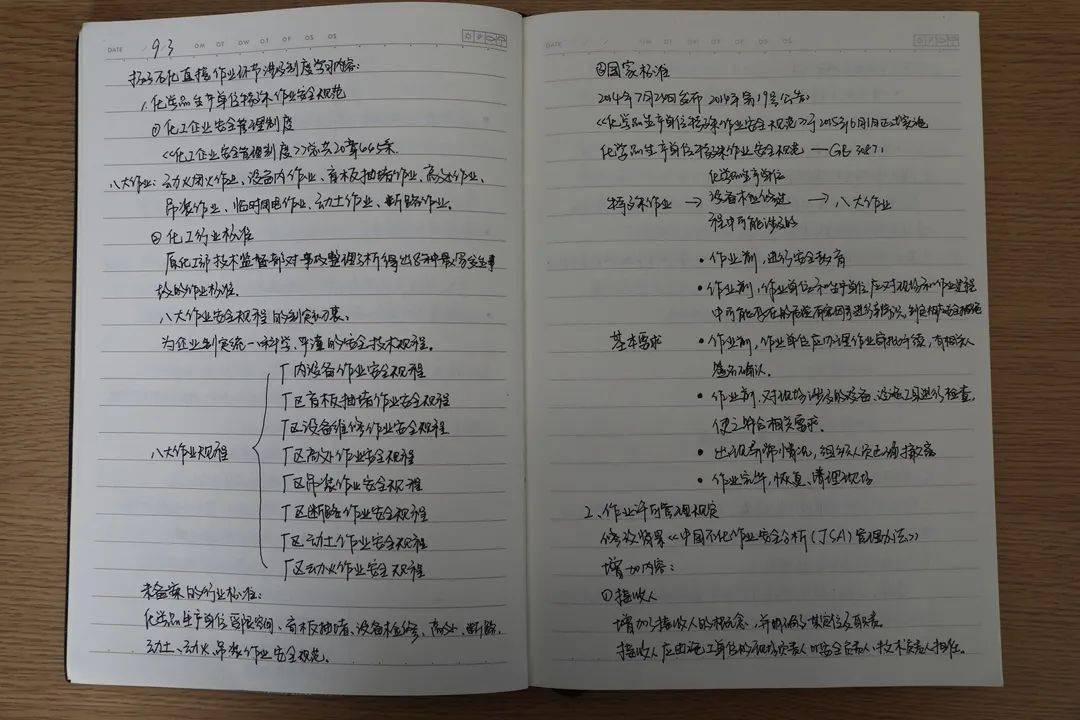 DATE 9.3 OM OT OW OT OF OS OS
扬子石化直接作业环节涉及制度学习内容:
1.化学品生产单位特殊作业安全规范
①化工企业安全管理制度
<<化工企业安全管理制度>>总共20章665条.
八大作业:动火用火作业、设备内作业、盲板抽堵作业、高处作业、
吊装作业、临时用电作业、动土作业、断路作业。
②化工行业标准
原化工部技术监督部对事故整理分析得出8种最易发生事
故的作业标准.
八大作业安全规程的制定初衷.
为企业制定统一、科学、严谨的安全技术规程。
八大作业规程
厂内设备作业安全规程
厂区盲板抽堵作业安全规程
厂区设备维修作业安全规程
厂区高处作业安全规程
厂区吊装作业安全规程
厂区断路作业安全规程
厂区动土作业安全规程
厂区动火作业安全规程
未备案的行业标准:
化学品生产单位受限空间、盲板抽堵、设备检修、高处、断路、
动土、动火、吊装作业安全规范.
DATE OM OT OW OT OF OS OS
③国家标准
2014年7月24日发布 2014年第19号公告
<<化学品生产单位特殊作业安全规范>>于2015年6月1日正式实施
化学品生产单位特殊作业安全规范 — GB 30871
特殊作业 → 化学品生产单位
设备检修过
程中可能涉及的 → 八大作业
基本要求
• 作业前,进行安全教育
• 作业前,作业单位和生产单位应对现场和作业过程
中可能存在的危险有害因素进行辨识,制定相应安全措施
• 作业前,作业单位应办理作业审批手续,有相关人
签名确认.
• 作业前,对现场涉及的设备、设施、工具进行检查,
使之符合相关要求.
• 出现异常情况,组织人员迅速撤离
• 作业完毕,恢复、清理现场
2、作业许可管理规定
修改背景<<中国石化作业安全分析(JSA)管理办法>>
增加内容:
①接收人
增加了接收人的概念,并明确了其定位及职责.
接收人应由施工单位的现场负责人或安全负责人、技术负责人担任。